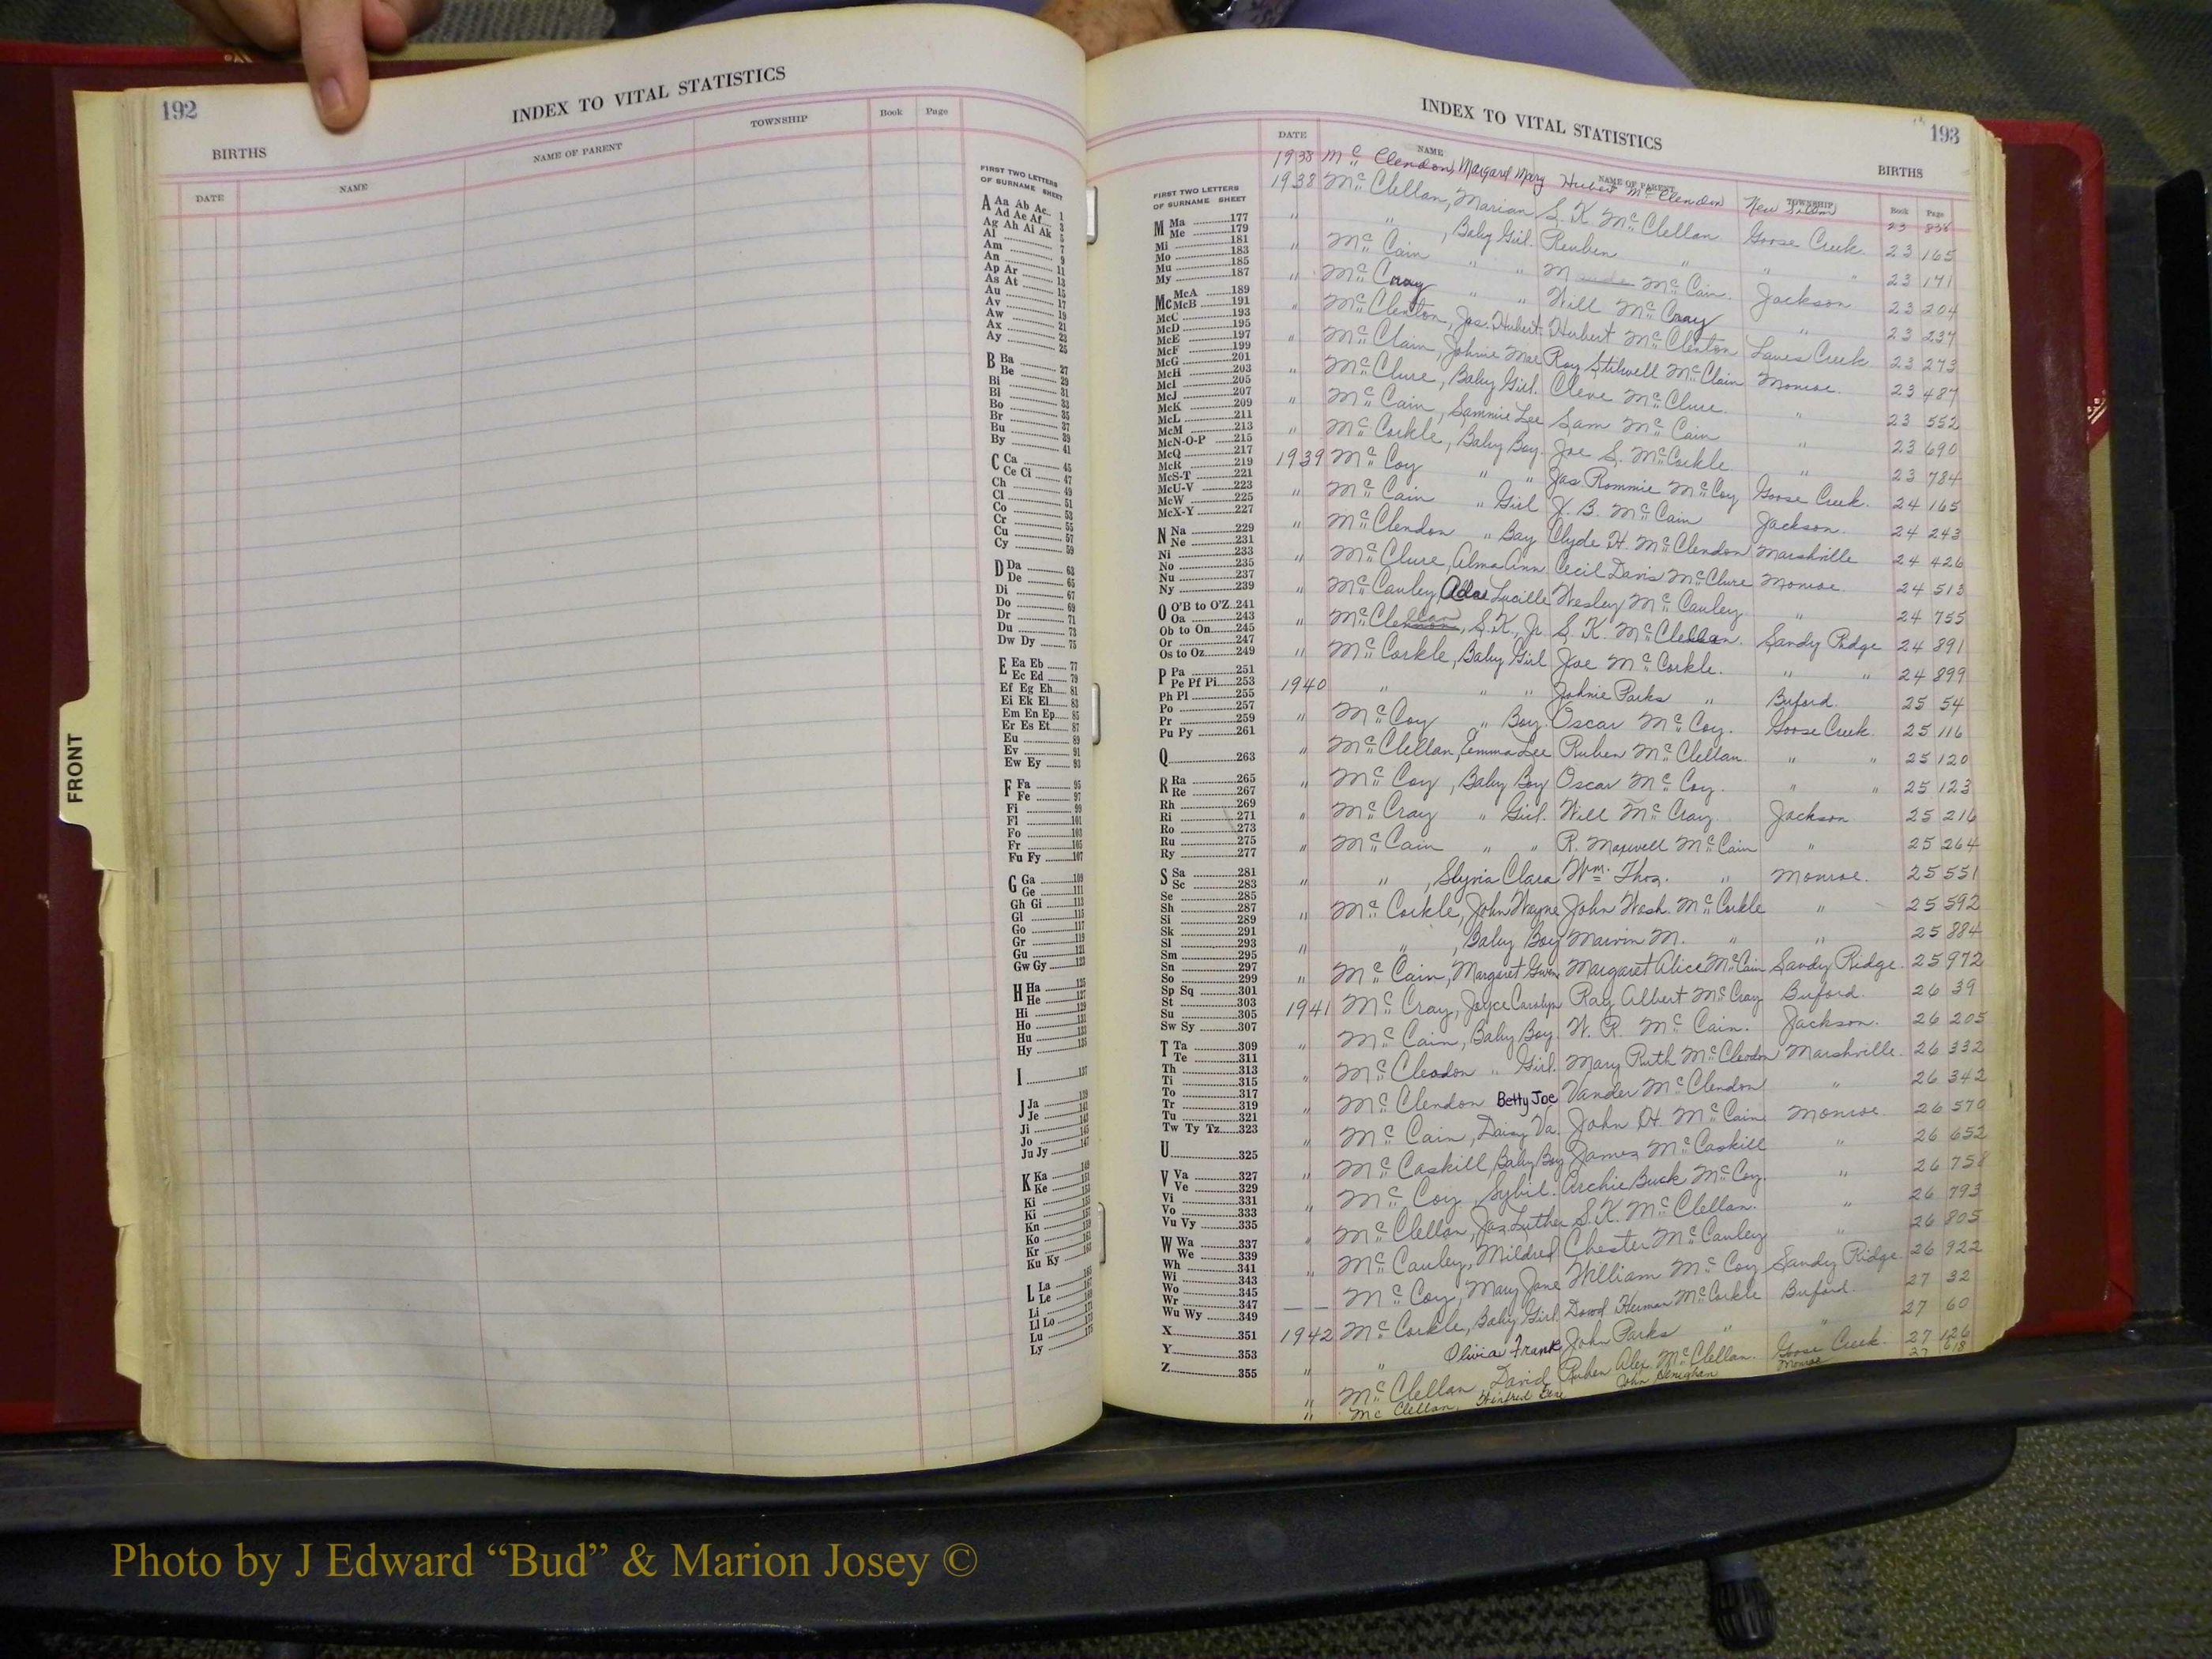 192
INDEX TO VITAL STATISTICS
BIRTHS
DATE NAME NAME OF PARENT TOWNSHIP Book Page
FIRST TWO LETTERS
OF SURNAME SHEET
A Aa Ab Ac 1
Ad Ae Af 3
Ag Ah Ai Ak 5
Al 7
Am 9
An
Ap Ar
As At
Au
Av
Aw
Ax
Ay
B Ba 27
Be 29
Bi 31
Bl 33
Bo 35
Br 37
Bu 39
By 41
C Ca 45
Ce Ci 47
Ch 49
Cl 51
Co 53
Cr 55
Cu 57
Cy 59
D Da 63
De 65
Di 67
Do 69
Dr 71
Du 73
Dw Dy 75
E Ea Eb 77
Ec Ed 79
Ef Eg Eh 81
Ei Ek El 83
Em En Ep 85
Er Es Et 87
Eu 89
Ev 91
Ew Ey 93
F Fa 95
Fe 97
Fi 99
Fl 101
Fo 103
Fr 105
Fu Fy 107
G Ga 109
Ge 111
Gh Gi 113
Gl 115
Go 117
Gr 119
Gu 121
Gw Gy 123
H Ha 125
He 127
Hi
Ho
Hu
Hy
I
J Ja
Je
Ji
Jo
Ju Jy
K Ka
Ke
Ki
Kn
Ko
Kr
Ku Ky
L La
Le
Li
Ll Lo
Lu
Ly
INDEX TO VITAL STATISTICS
193
BIRTHS
DATE NAME NAME OF PARENT TOWNSHIP Book Page
FIRST TWO LETTERS
OF SURNAME SHEET
M Ma 177
Me 179
Mi 181
Mo 183
Mu 185
My 187
Mc McA 189
McB 191
McC 193
McD 195
McE 197
McF 199
McG 201
McH 203
McI 205
McJ 207
McK 209
McL 211
McM 213
McN-O-P 215
McQ 217
McR 219
McS-T 221
McU-V 223
McW 225
McX-Y 227
N Na 229
Ne 231
Ni 233
No 235
Nu 237
Ny 239
O O'B to O'Z 241
Oa 243
Ob to On 245
Or 247
Os to Oz 249
P Pa 251
Pe Pf Pi 253
Ph Pl 255
Po 257
Pr 259
Pu Py 261
Q 263
R Ra 265
Re 267
Rh 269
Ri 271
Ro 273
Ru 275
Ry 277
S Sa 281
Sc 283
Se 285
Sh 287
Si 289
Sk 291
Sl 293
Sm 295
Sn 297
So 299
Sp Sq 301
St 303
Su 305
Sw Sy 307
T Ta 309
Te 311
Th 313
Ti 315
To 317
Tr 319
Tu 321
Tw Ty Tz 323
U 325
V Va 327
Ve 329
Vi 331
Vo 333
Vu Vy 335
W Wa 337
We 339
Wh 341
Wi 343
Wo 345
Wr 347
Wu Wy 349
X 351
Y 353
Z 355
1938 McClendon, Margard Mary Hubert McClendon New Salem 23 838
1938 McClellan, Marian S. K. McClellan Goose Creek 23 165
" " , Baby Girl Reuben " " " 23 171
" McCain " " McCain Jackson 23 204
" McCray " " Will McCray " 23 237
" McClinton, Jas. Hubert Hubert McClinton Lanes Creek 23 273
" McClain, Johnie Mae Roy Stilwell McClain Monroe 23 487
" McClure, Baby Girl Cleve McClure " 23 552
" McCain, Sammie Lee Sam McCain " 23 690
" McCorkle, Baby Boy Joe S. McCorkle " 23 784
1939 McCoy " " Jas. Rommie McCoy Goose Creek 24 165
" McCain " Girl J. B. McCain Jackson 24 243
" McClendon " Boy Clyde H. McClendon Marshville 24 426
" McClure, Alma Ann Cecil Davis McClure Monroe 24 513
" McCauley, Adae Lucille Wesley McCauley " 24 755
" McClellan, S.K., Jr. S. K. McClellan Sandy Ridge 24 891
" McCorkle, Baby Girl Joe McCorkle " " 24 899
1940 " " " Johnie Parks " Buford 25 54
" McCoy " Boy Oscar McCoy Goose Creek 25 116
" McClellan, Emma Lee Ruben McClellan " " 25 120
" McCoy, Baby Boy Oscar McCoy " " 25 123
" McCray " Girl Will McCray Jackson 25 216
" McCain " " R. Maxwell McCain " 25 264
" " , Slyvia Clara Wm. Thos. " Monroe 25 551
" McCorkle, John Wayne John Wash. McCorkle " 25 592
" " , Baby Boy Marvin M. " " 25 884
" McCain, Margaret Gwen Margaret Alice McCain Sandy Ridge 25 972
1941 McCray, Joyce Carolyn Ray Albert McCray Buford 26 39
" McCain, Baby Boy W. R. McCain Jackson 26 205
" McClendon " Girl Mary Ruth McClendon Marshville 26 332
" McClendon Betty Joe Vander McClendon " 26 342
" McCain, Daisy Va. John H. McCain Monroe 26 570
" McCaskill, Baby Boy James McCaskill " 26 652
" McCoy, Sybil Archie Buck McCoy " 26 758
" McClellan, Jas. Luther S. K. McClellan " 26 793
" McCauley, Mildred Chester McCauley " 26 805
" McCoy, Mary Jane William McCoy Sandy Ridge 26 922
1942 McCorkle, Baby Girl Dowd Herman McCorkle Buford 27 32
" " Olivia Frank John Parks " " 27 60
" McClellan, David Ruben Alex McClellan Goose Creek 27 126
" McClellan, Winfred Gene John Monroe 27 618
FRONT
Photo by J Edward “Bud” & Marion Josey ©